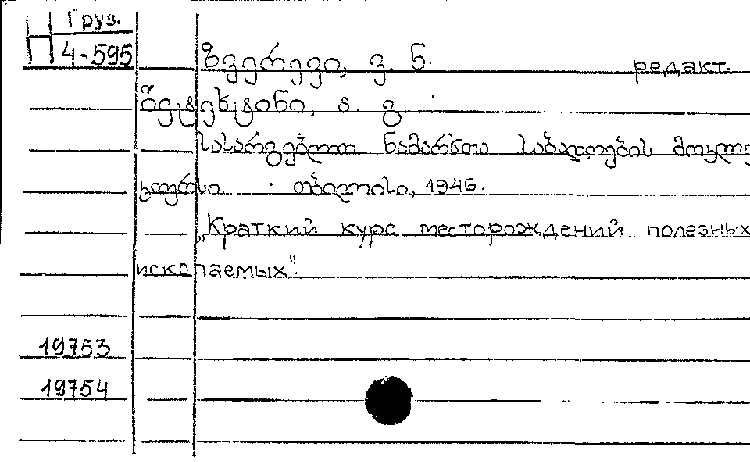 Груз.
П
4-595
ზვერევი, ვ. ნ. редакт.
ბეტეხტინი, ა. გ.
სასარგებლო ნამარხთა საბადოების მოკლე
კურსი. თბილისი, 1946.
„Краткий курс месторождений полезных
ископаемых".
19753
19754